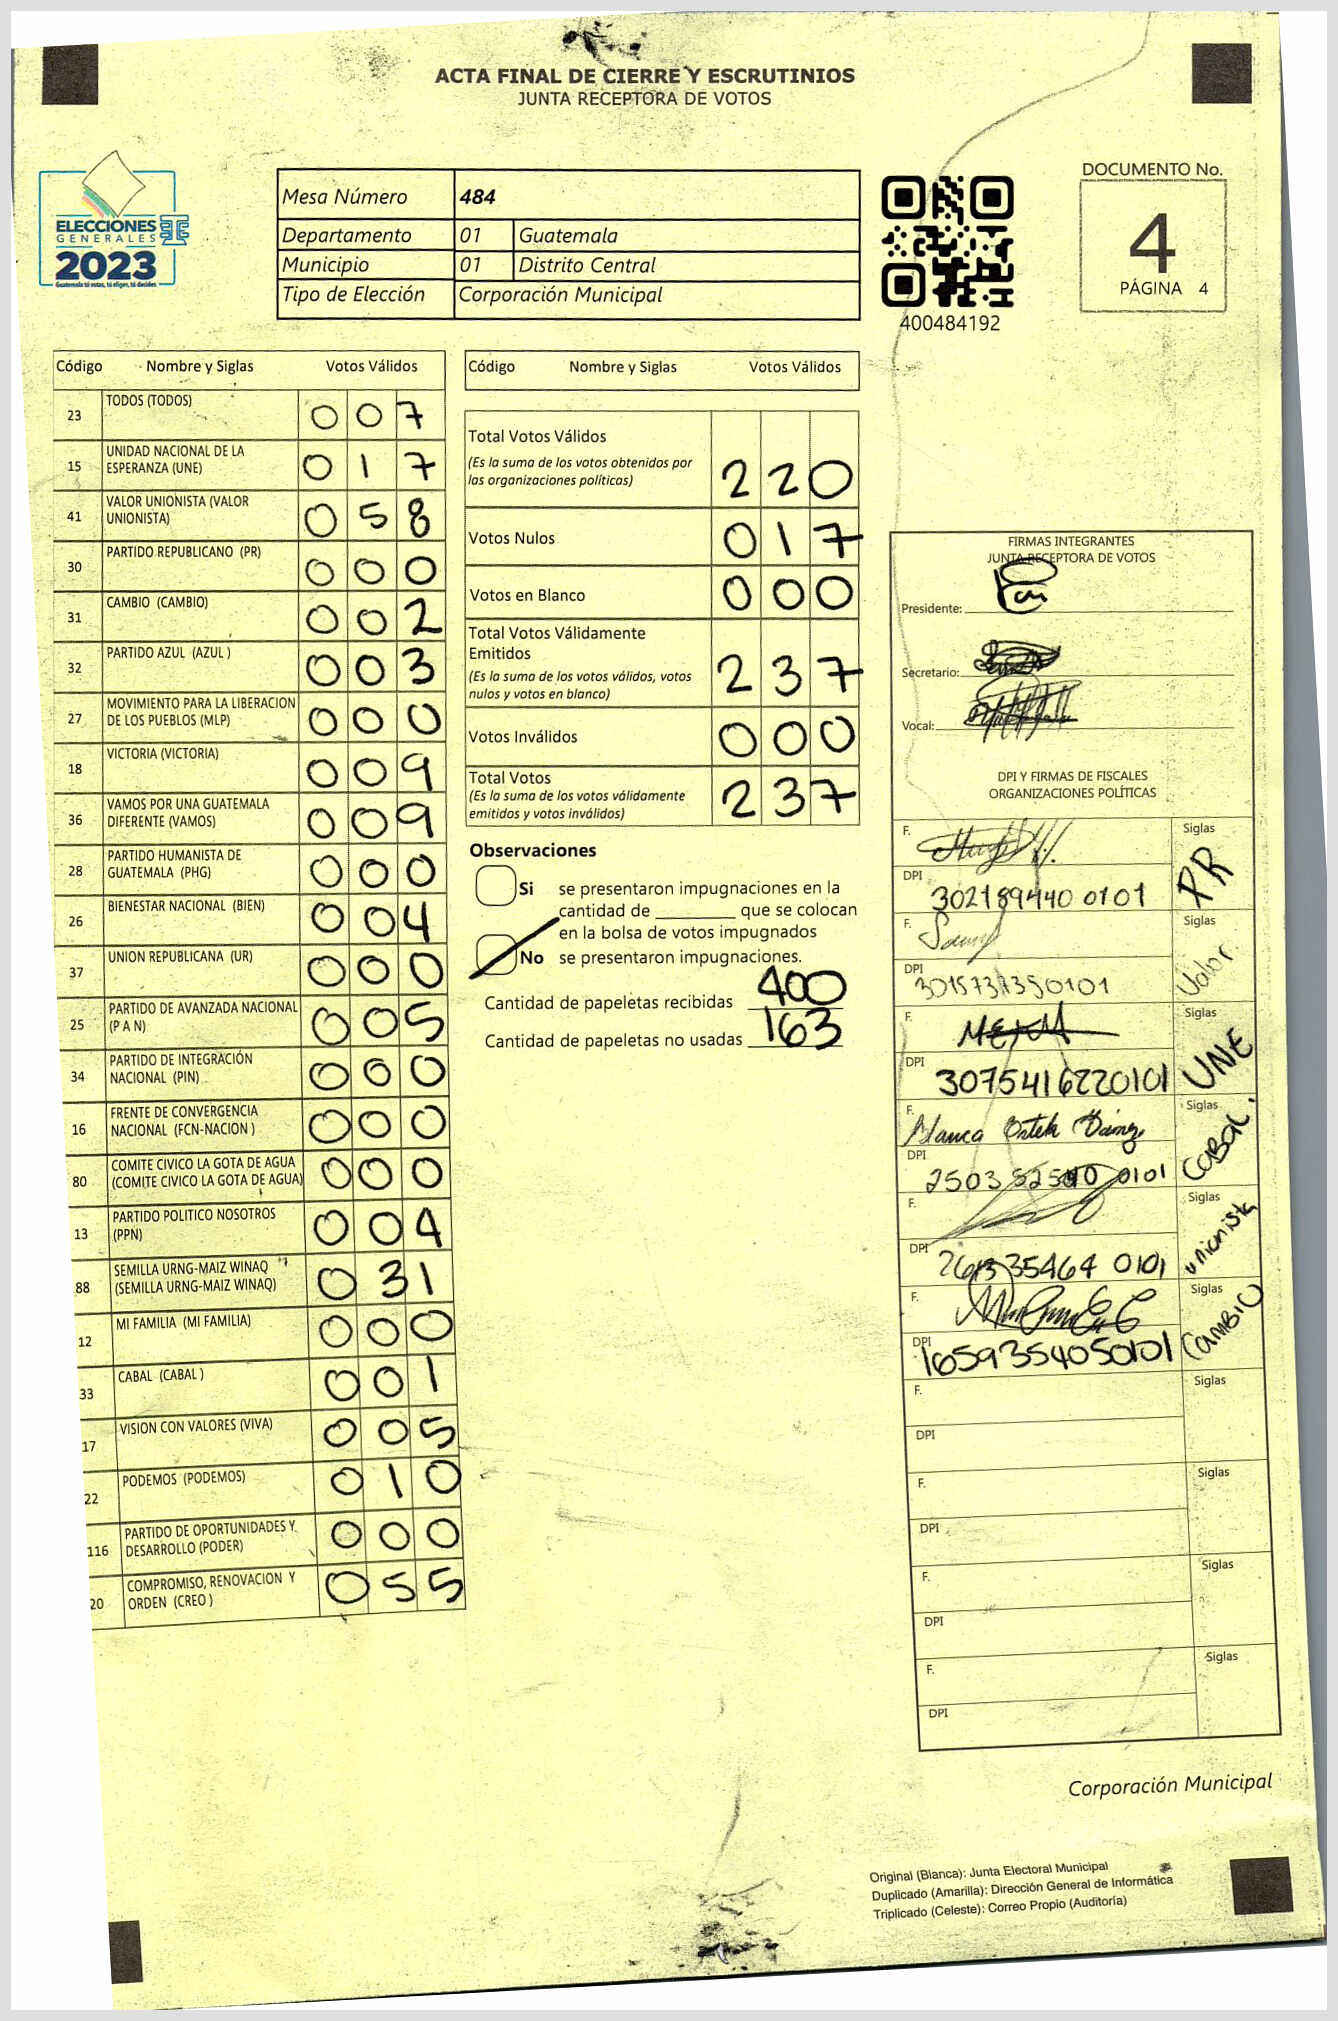 ACTA FINAL DE CIERRE Y ESCRUTINIOS
JUNTA RECEPTORA DE VOTOS
ELECCIONES
GENERALES
2023
Guatemala tú votas, tú eliges, tú decides
Mesa Número 484
Departamento 01 Guatemala
Municipio 01 Distrito Central
Tipo de Elección Corporación Municipal
400484192
DOCUMENTO No.
4
PÁGINA 4
Código Nombre y Siglas Votos Válidos
23 TODOS (TODOS) 0 0 7
15 UNIDAD NACIONAL DE LA ESPERANZA (UNE) 0 1 7
41 VALOR UNIONISTA (VALOR UNIONISTA) 0 5 8
30 PARTIDO REPUBLICANO (PR) 0 0 0
31 CAMBIO (CAMBIO) 0 0 2
32 PARTIDO AZUL (AZUL ) 0 0 3
27 MOVIMIENTO PARA LA LIBERACION DE LOS PUEBLOS (MLP) 0 0 0
18 VICTORIA (VICTORIA) 0 0 9
36 VAMOS POR UNA GUATEMALA DIFERENTE (VAMOS) 0 0 9
28 PARTIDO HUMANISTA DE GUATEMALA (PHG) 0 0 0
26 BIENESTAR NACIONAL (BIEN) 0 0 4
37 UNION REPUBLICANA (UR) 0 0 0
25 PARTIDO DE AVANZADA NACIONAL (P A N) 0 0 5
34 PARTIDO DE INTEGRACIÓN NACIONAL (PIN) 0 0 0
16 FRENTE DE CONVERGENCIA NACIONAL (FCN-NACION ) 0 0 0
80 COMITE CIVICO LA GOTA DE AGUA (COMITE CIVICO LA GOTA DE AGUA) 0 0 0
13 PARTIDO POLITICO NOSOTROS (PPN) 0 0 4
88 SEMILLA URNG-MAIZ WINAQ (SEMILLA URNG-MAIZ WINAQ) 0 3 1
12 MI FAMILIA (MI FAMILIA) 0 0 0
33 CABAL (CABAL ) 0 0 1
17 VISION CON VALORES (VIVA) 0 0 5
22 PODEMOS (PODEMOS) 0 1 0
116 PARTIDO DE OPORTUNIDADES Y DESARROLLO (PODER) 0 0 0
20 COMPROMISO, RENOVACION Y ORDEN (CREO ) 0 5 5
Código Nombre y Siglas Votos Válidos
Total Votos Válidos 2 2 0
(Es la suma de los votos obtenidos por
las organizaciones políticas)
Votos Nulos 0 1 7
Votos en Blanco 0 0 0
Total Votos Válidamente
Emitidos 2 3 7
(Es la suma de los votos válidos, votos
nulos y votos en blanco)
Votos Inválidos 0 0 0
Total Votos 2 3 7
(Es la suma de los votos válidamente
emitidos y votos inválidos)
Observaciones
Si se presentaron impugnaciones en la
cantidad de ________ que se colocan
en la bolsa de votos impugnados
No se presentaron impugnaciones.
Cantidad de papeletas recibidas 400
Cantidad de papeletas no usadas 163
FIRMAS INTEGRANTES
JUNTA RECEPTORA DE VOTOS
Presidente:
Secretario:
Vocal:
DPI Y FIRMAS DE FISCALES
ORGANIZACIONES POLÍTICAS
F. Siglas PR
DPI 302189440 0101
F. Siglas Valor
DPI
F. Siglas UNE
DPI 3075416220101
F. Blanca Siglas CABAL.
DPI
F. Siglas unionista
DPI
F. Siglas CAMBIO
DPI 1659354050101
F. Siglas
DPI
F. Siglas
DPI
F. Siglas
DPI
F. Siglas
DPI
Corporación Municipal
Original (Blanca): Junta Electoral Municipal
Duplicado (Amarilla): Dirección General de Informática
Triplicado (Celeste): Correo Propio (Auditoría)